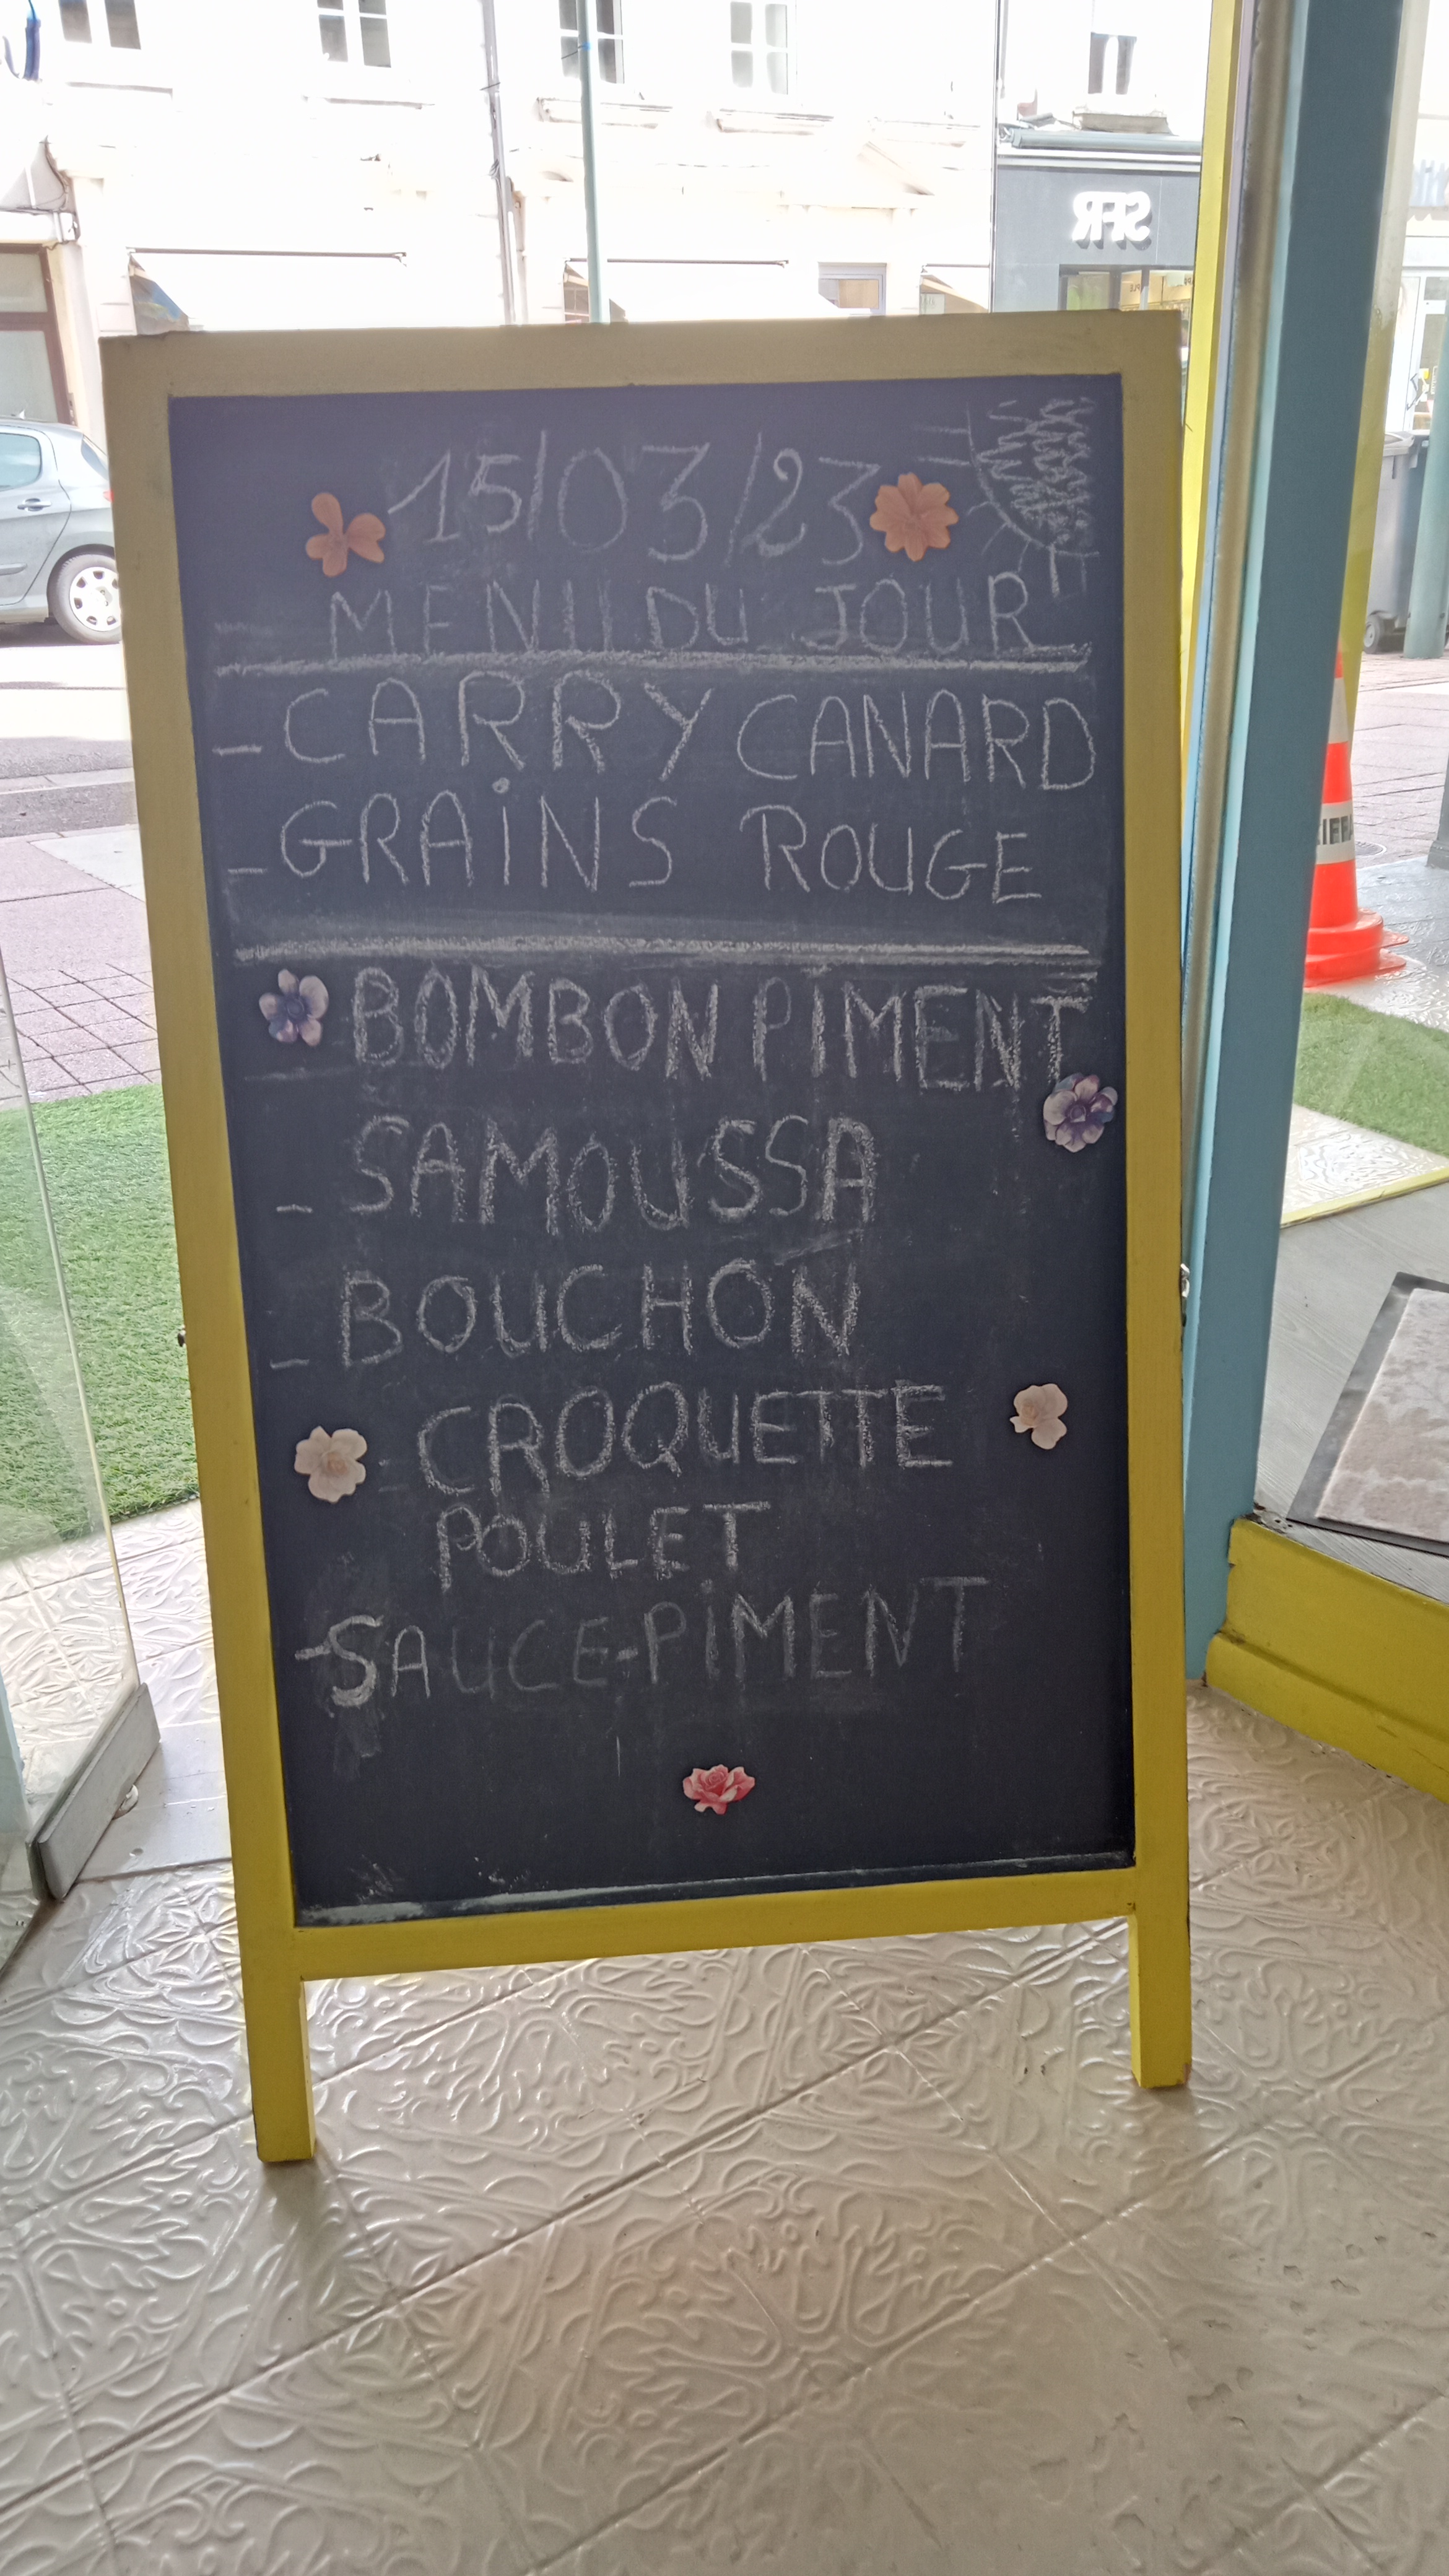 SFR
15/03/23
MENU DU JOUR
- CARRY CANARD
- GRAINS ROUGE
BOMBON PIMENT
- SAMOUSSA
- BOUCHON
- CROQUETTE
POULET
- SAUCE-PIMENT